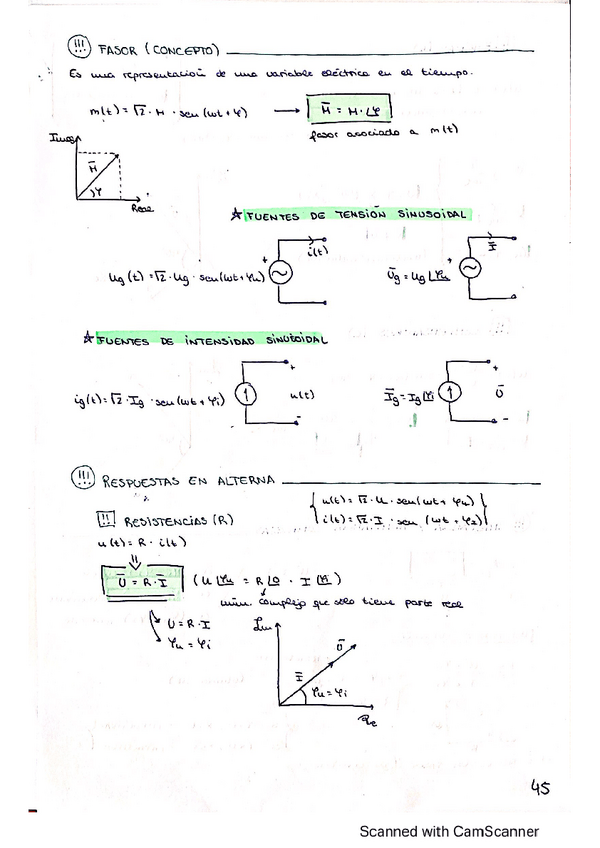 !!! FASOR (CONCEPTO)
Es una representación de una variable eléctrica en el tiempo.
m(t) = √2 · M · sen(ωt + φ) → M̄ = M · ∠φ
fasor asociado a m(t)
Imag
M̄
φ
Real
☆ FUENTES DE TENSIÓN SINUSOIDAL
Ug(t) = √2 · Ug · sen(ωt + φu) + i(t) Ūg = Ug ∠φu + Ī
☆ FUENTES DE INTENSIDAD SINUSOIDAL
ig(t) = √2 · Ig · sen(ωt + φi) + u(t) - Īg = Ig ∠φi + Ū -
!!! RESPUESTAS EN ALTERNA
u(t) = √2 · U · sen(ωt + φu)
!! RESISTENCIAS (R) i(t) = √2 · I · sen (ωt + φi)
u(t) = R · i(t)
⇓
Ū = R · Ī (U ∠φu = R ∠0 · I ∠φi)
núm. complejo que sólo tiene parte real
U = R · I
φu = φi
Im
Ū
Ī
φu = φi
Re
45
Scanned with CamScanner